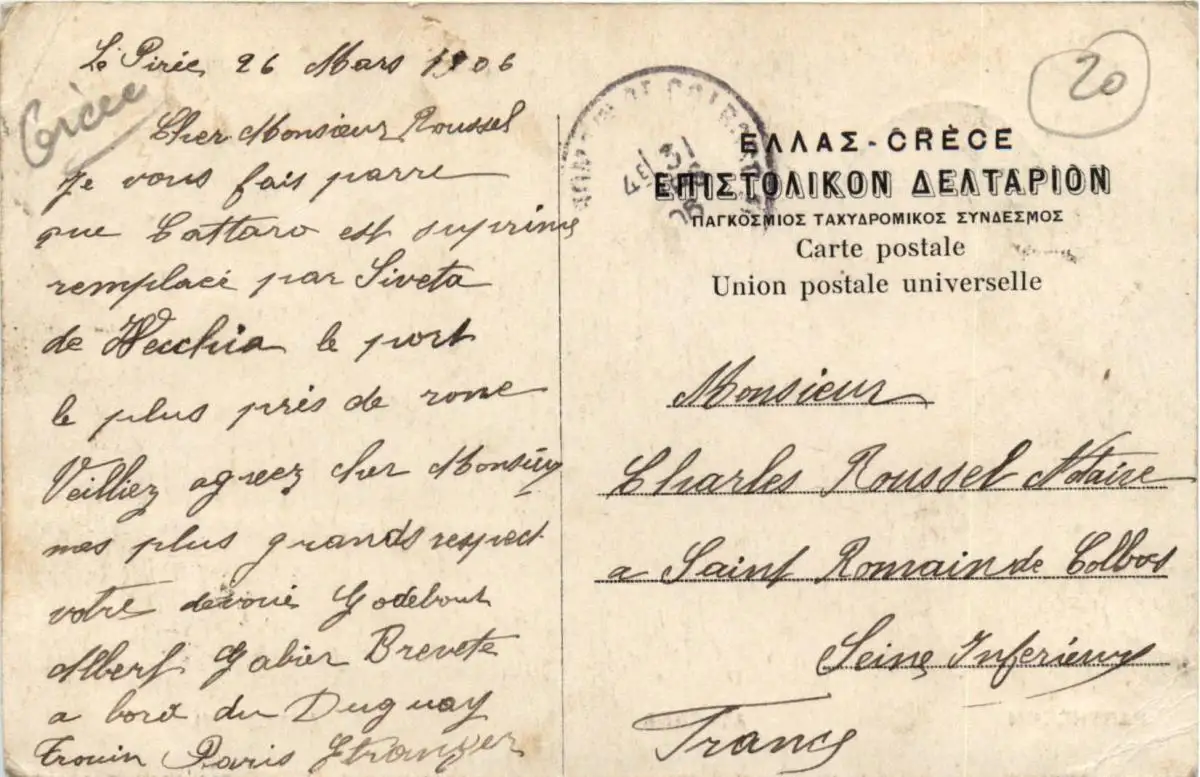 Le Pirée 26 Mars 1906
Grèce
Cher Monsieur Roussel
Je vous fais parre
que Cattaro est suprimé
remplacé par Siveta
de Vecchia le port
le plus près de rome
Veilliez agreez cher Monsieur
mes plus grands respect
votre devoué Godebout
Albert Gabier Breveté
a bord du Duguay
Trouin Paris Etranger
20
ΕΛΛΑΣ - GRÈCE
ΕΠΙΣΤΟΛΙΚΟΝ ΔΕΛΤΑΡΙΟΝ
ΠΑΓΚΟΣΜΙΟΣ ΤΑΧΥΔΡΟΜΙΚΟΣ ΣΥΝΔΕΣΜΟΣ
Carte postale
Union postale universelle
Monsieur
Charles Roussel Notaire
a Saint Romain de Colbos
Seine Inferieure
France